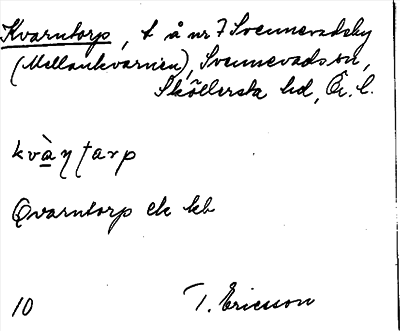 Kvarntorp, t å nr 7 Svennevadsby
(Mellankvarnen), Svennevads sn,
Sköllersta hd, Ör. l.
kvàη tarp
Qvarntorp ek kb
10 T. Ericsson